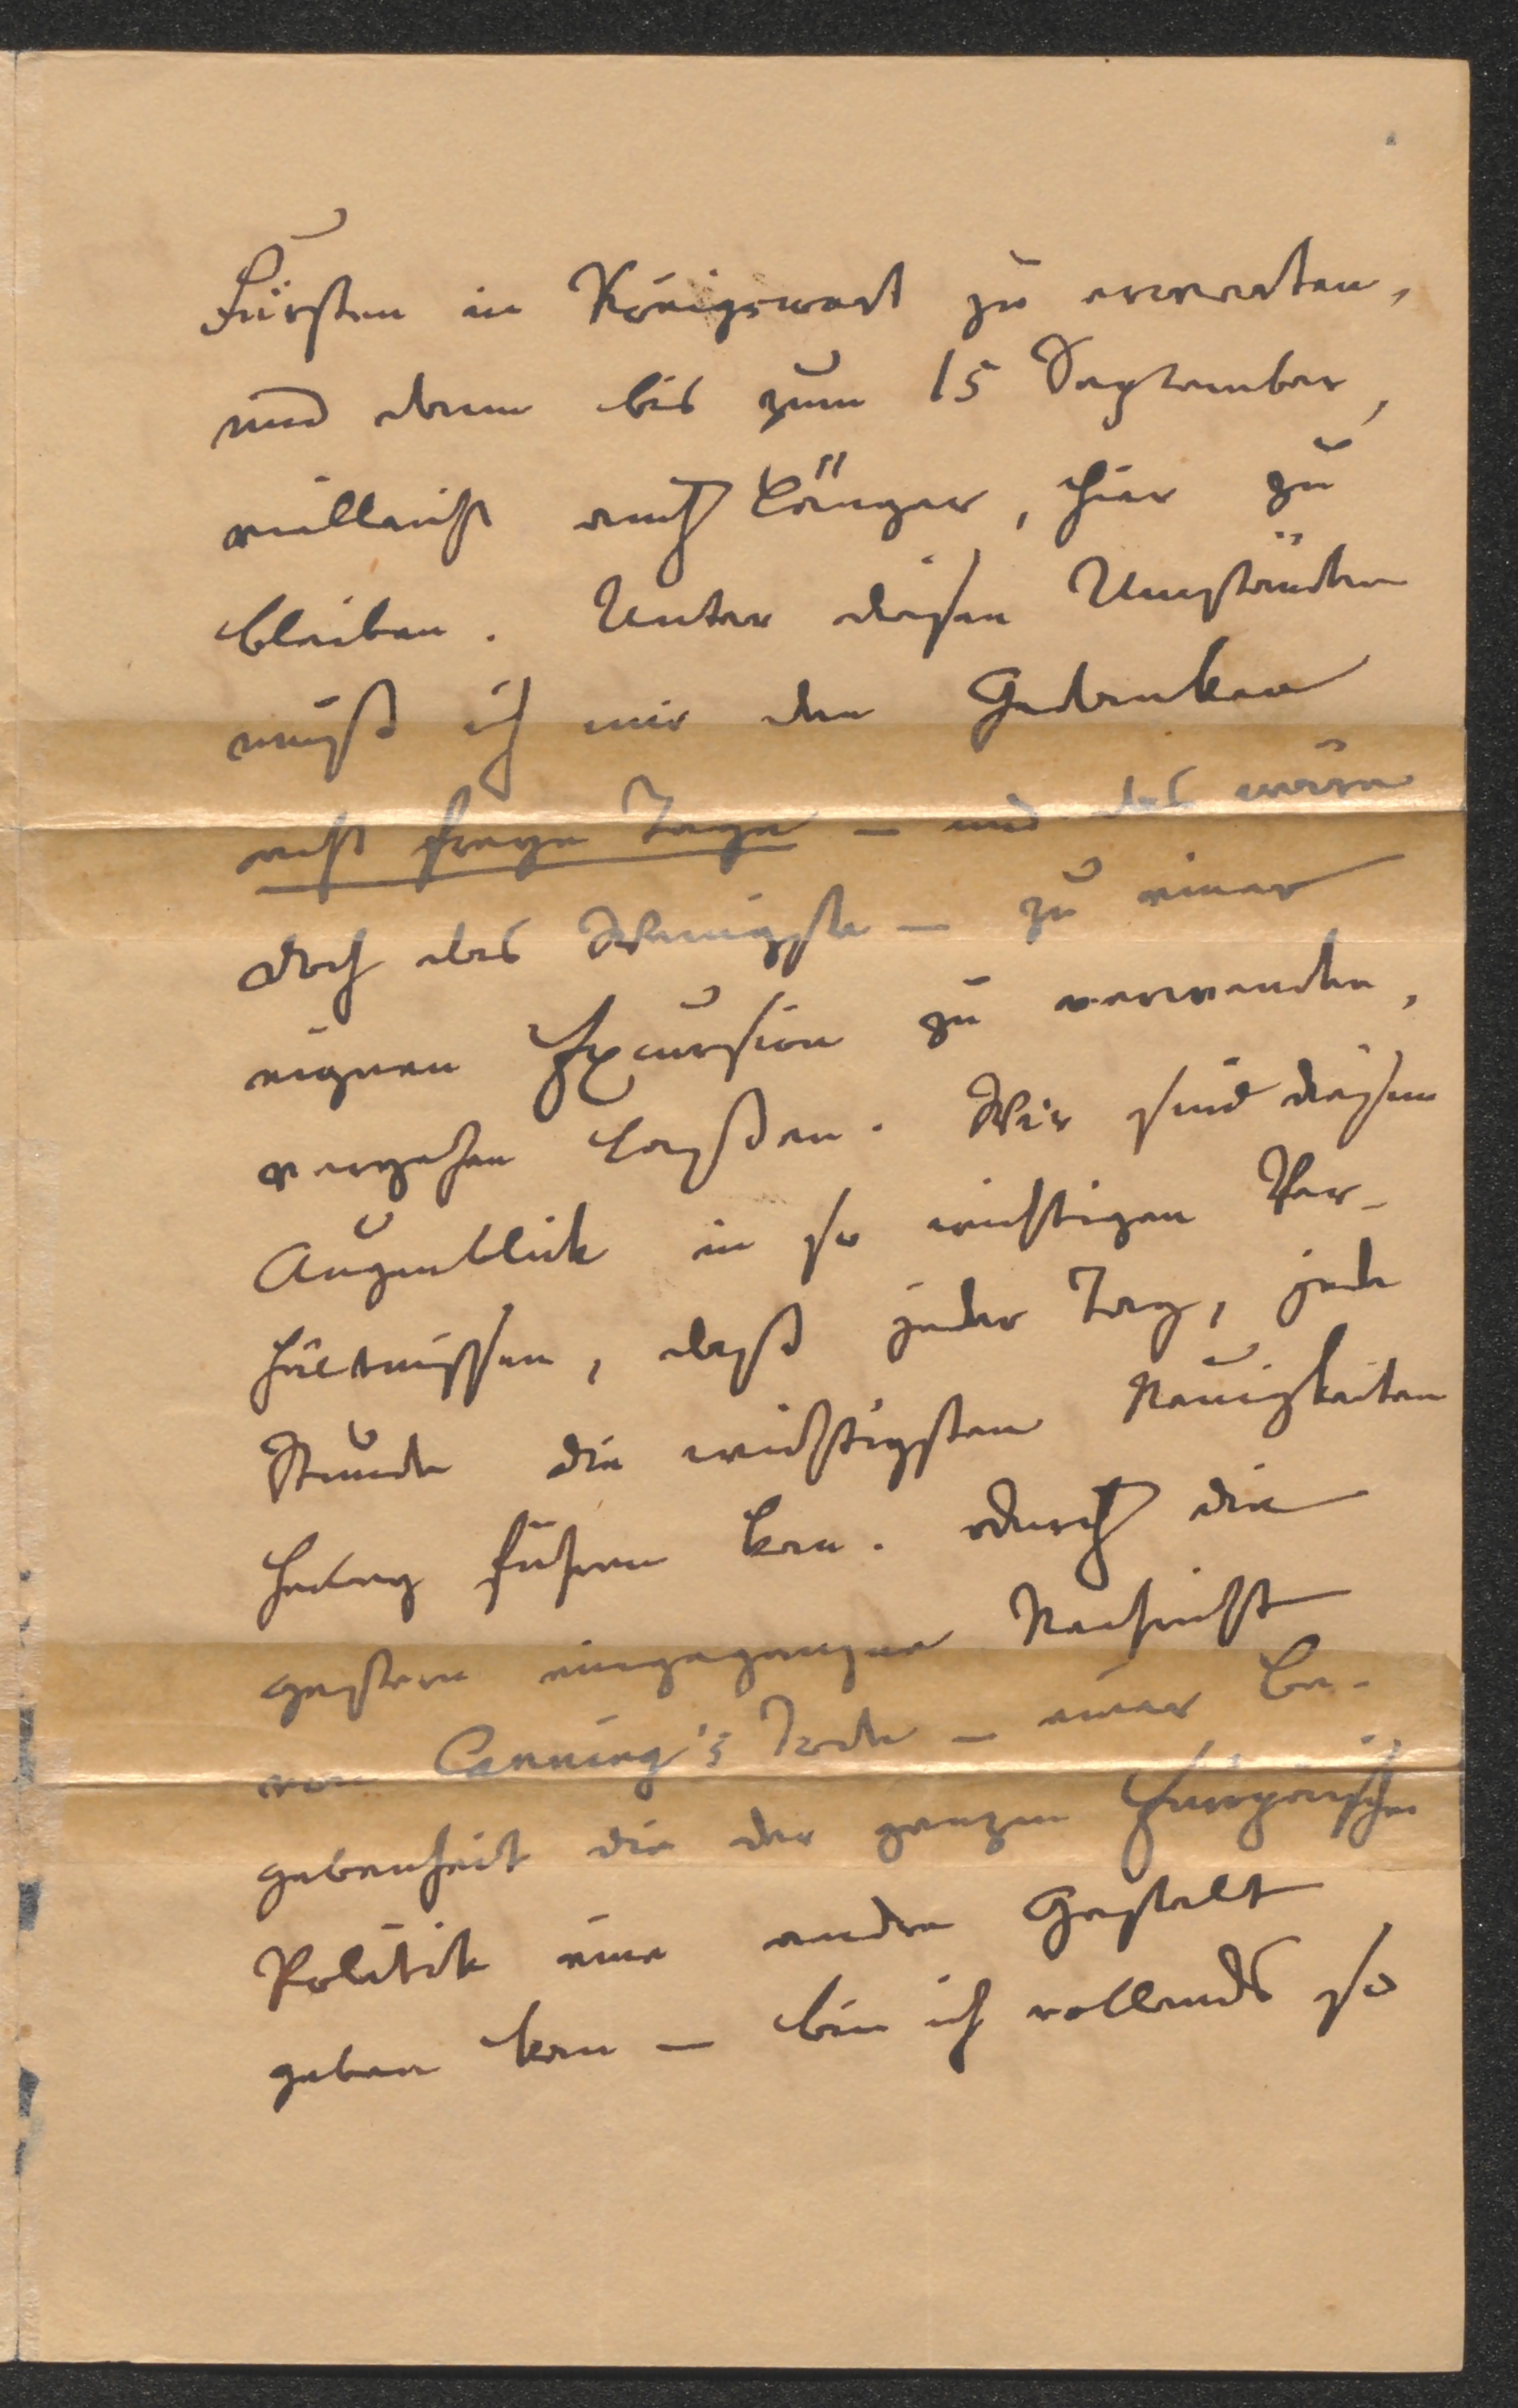 Fürsten in Königswart zu erwarten,
und dann bis zum 15 September,
vielleicht auch länger, hier zu
bleiben. Unter diesen Umständen
muß ich mir den Gedanken
acht freye Tage – und das wäre
doch das Wenigste – zu einer
eignen Excursion zu verwenden,
vergehen laßen. Wir sind diesen
Augenblick in so wichtigen Ver-
hältnissen, daß jeder Tag, jede
Stunde die wichtigsten Neuigkeiten
herbey führen kan. Durch die
gestern eingegangne Nachricht
von Canning's Tode – einer Be-
gebenheit die der ganzen Europäischen
Politik eine andre Gestalt
geben kan – bin ich vollends so